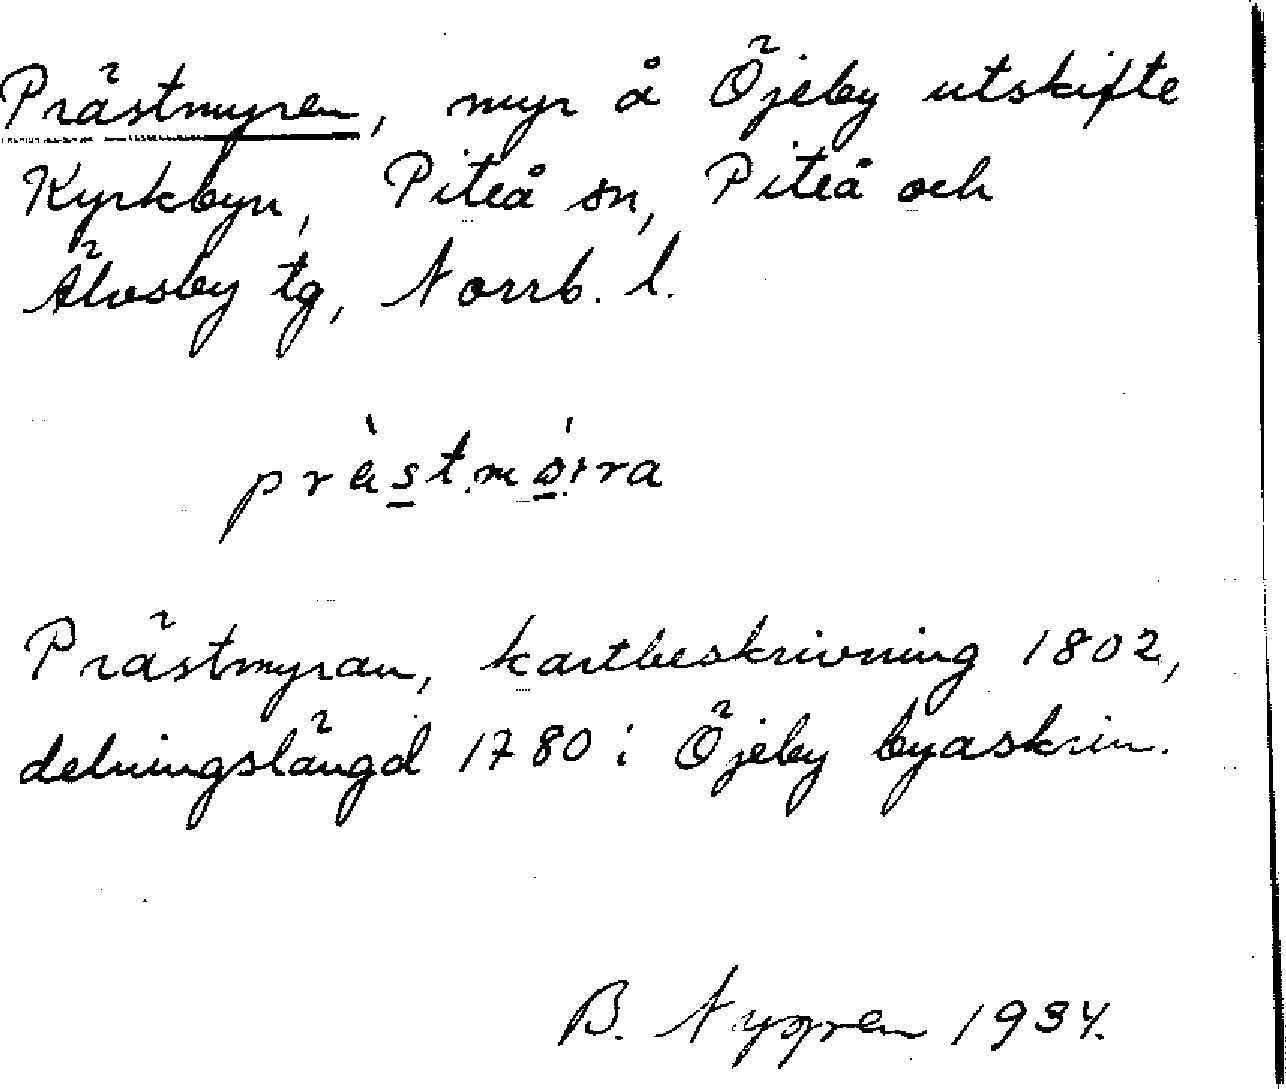 Prästmyren, myr å Öjeby utskifte
Kyrkbyn, Piteå sn, Piteå och
Älvsby tg, Norrb. l.
prästmöɪra
Prästmyran, kartbeskrivning 1802,
delningslängd 1780 i Öjeby byaskrin.
B. Nygren 1934.